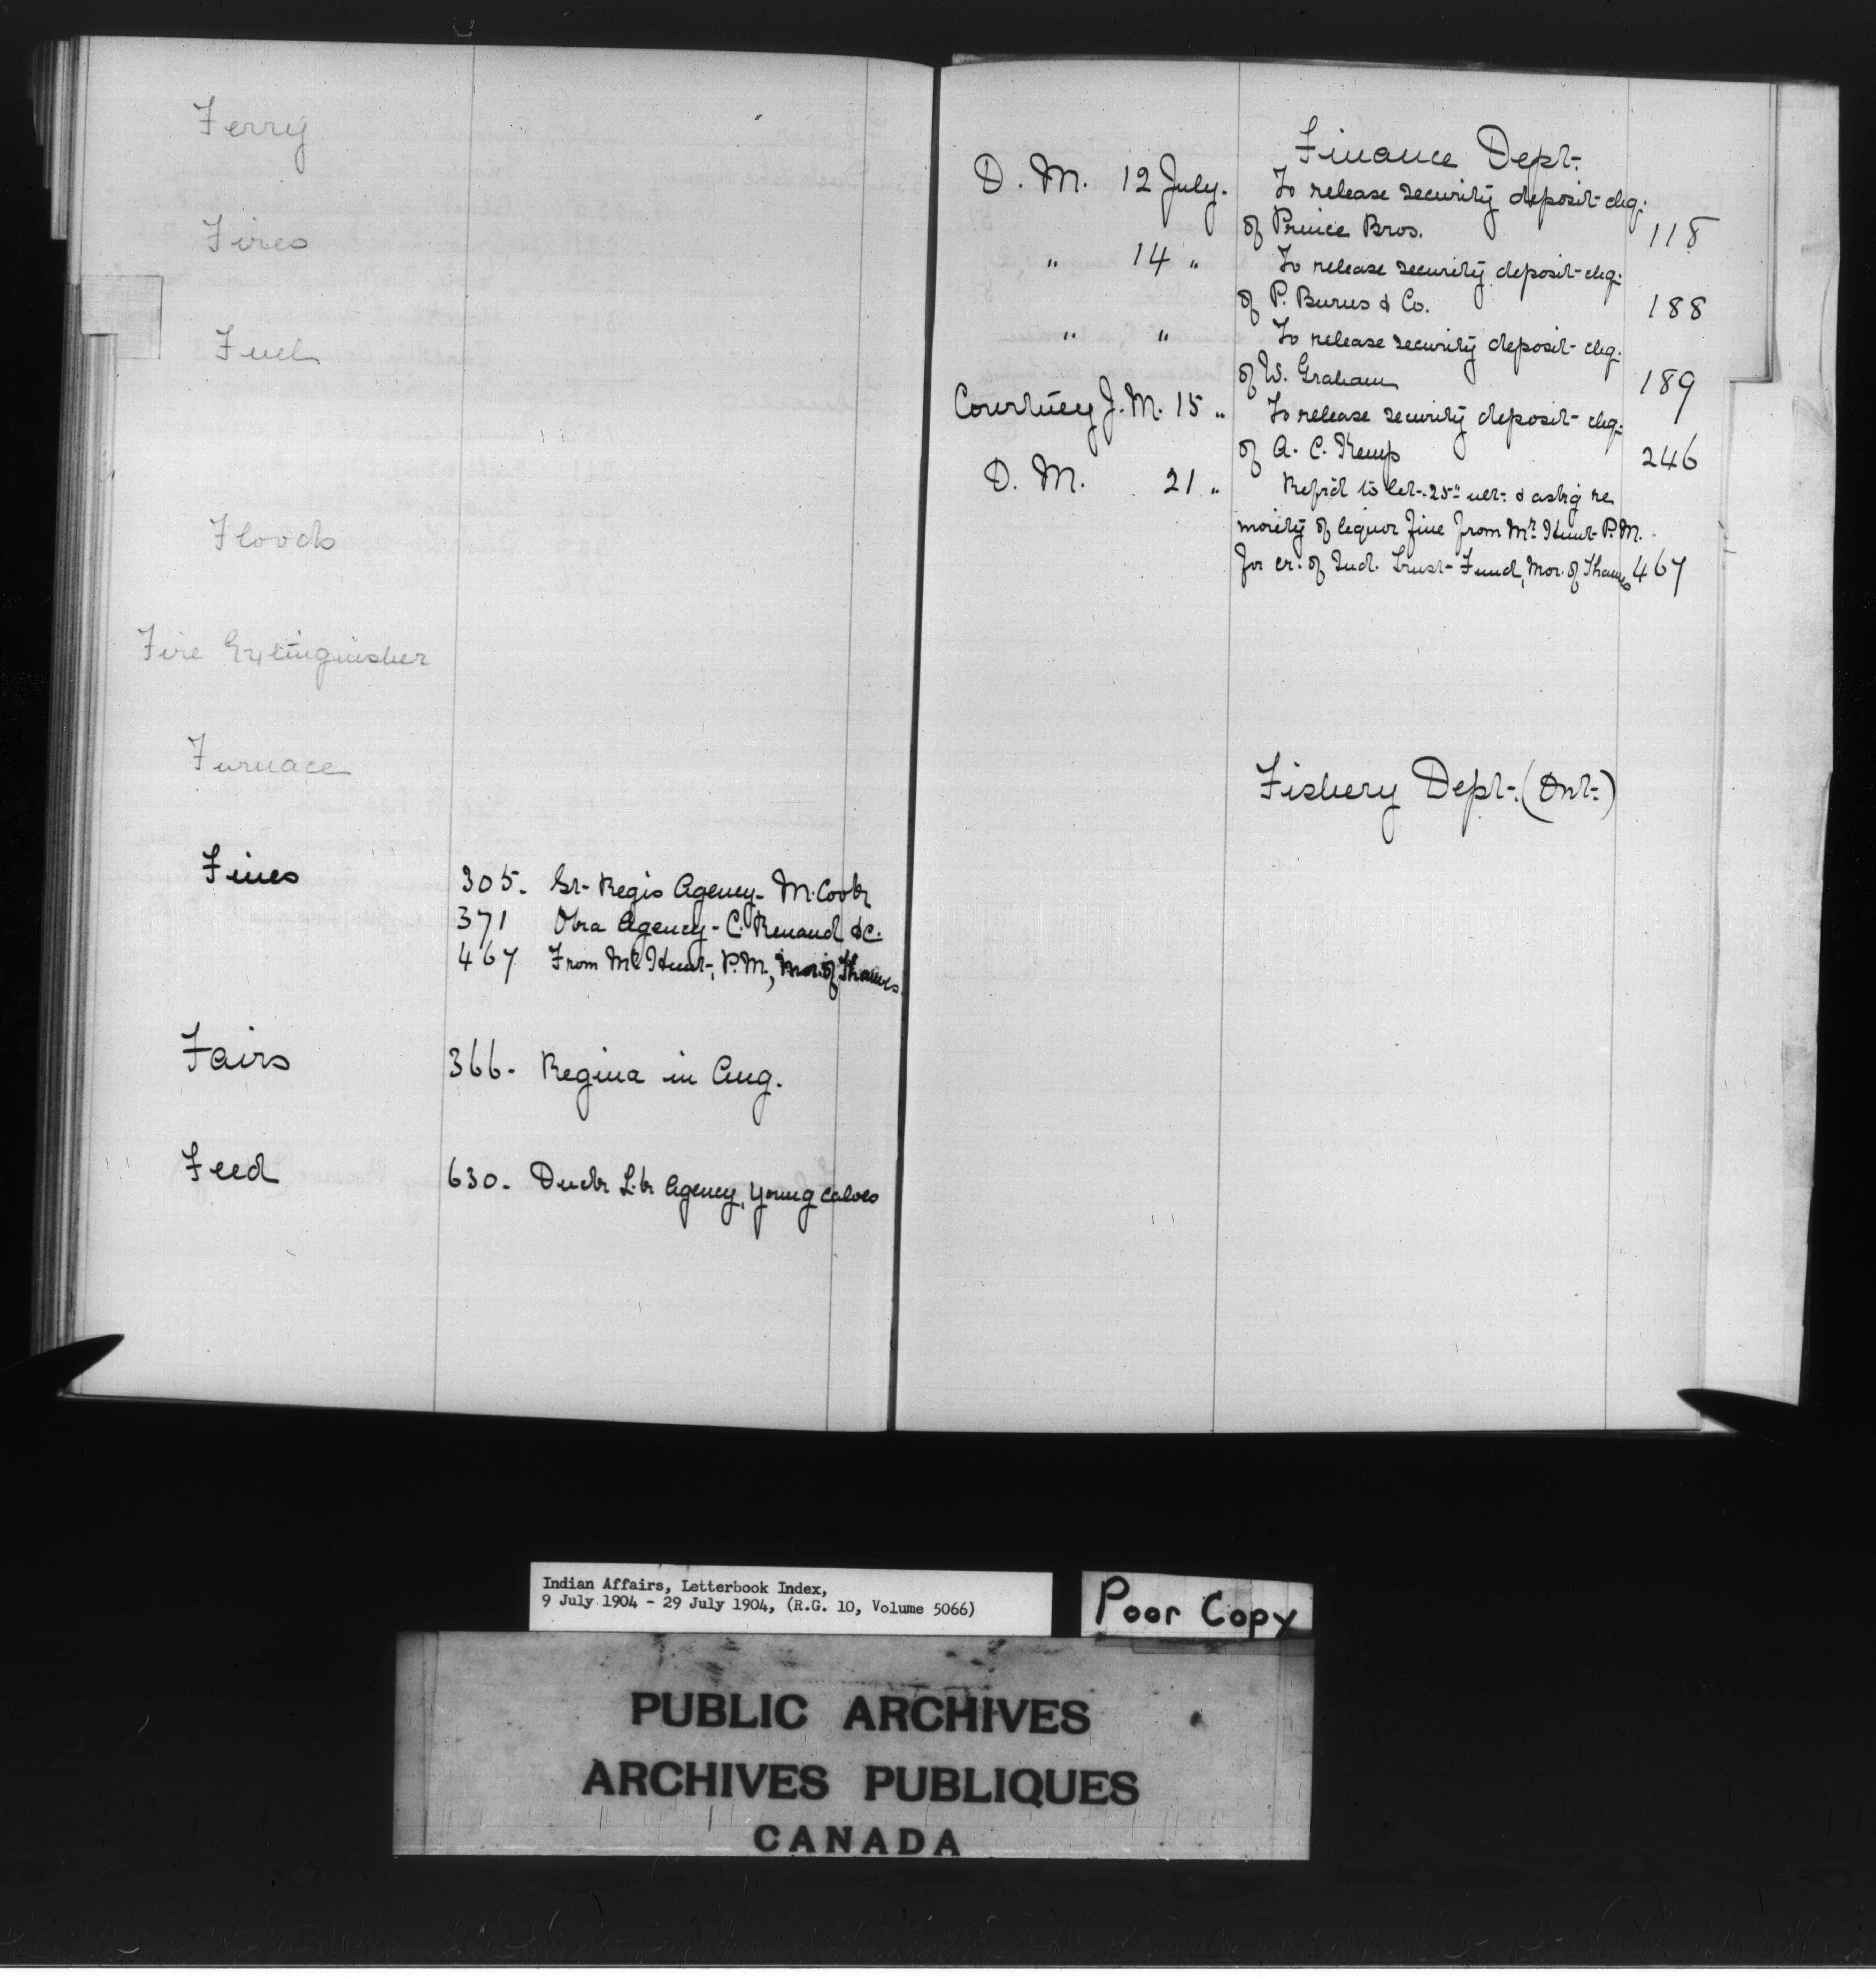 Ferry
Fires
Fuel
Floods
Fire Extinguisher
Furnace
Fines 305. St. Regis Agency - M. Cook
371 Oka Agency - C. Renaud &c.
467 From Mr Hunt, P.M., Mor. of Thames.
Fairs 366. Regina in Aug.
Feed 630. Duck L.k Agency, young calves
Finance Dept.
D. M. 12 July. To release security deposit chq.
of Prince Bros. 118
" 14 " To release security deposit chq.
of P. Burns & Co. 188
" " To release security deposit chq.
of W. Graham 189
Courtney J. M. 15 " To release security deposit chq.
of A. C. Kemp 246
D. M. 21 " Refrd to let. 25" & askg re
moiety of liquor fine from Mr Hunt P.M.
for cr. of Ind. Trust Fund, Mor. of Thames 467
Fishery Dept. (Ont.)
Indian Affairs, Letterbook Index,
9 July 1904 - 29 July 1904, (R.G. 10, Volume 5066)
Poor Copy
PUBLIC ARCHIVES
ARCHIVES PUBLIQUES
CANADA